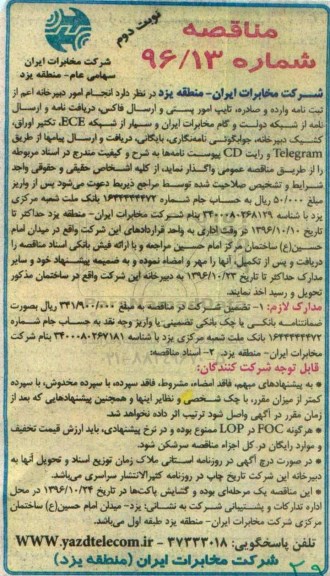 مناقصه
شماره ۹۶/۱۳
نوبت دوم
شرکت مخابرات ایران
سهامی عام- منطقه یزد
شرکت مخابرات ایران- منطقه یزد در نظر دارد انجام امور دبیرخانه اعم از
ثبت نامه وارده و صادره، تایپ امور پستی و ارسال فاکس، دریافت نامه و ارسال
نامه از شبکه دولت و گام مخابرات ایران و سیار از شبکه ECE، تکثیر اوراق،
کشیک دبیرخانه، جوابگوئی نامه‌نگاری، بایگانی، دریافت و ارسال پیامها از طریق
Telegram و رایت CD پیوست نامه‌ها به شرح و کیفیت مندرج در اسناد مربوطه
را از طریق مناقصه عمومی واگذار نمایند، از کلیه اشخاص حقیقی و حقوقی واجد
شرایط و تشخیص صلاحیت شده توسط مراجع ذیربط دعوت می‌شود پس از واریز
مبلغ ۵۰/۰۰۰ ریال به حساب جام شماره ۱۶۴۴۴۴۴۴۷۲ بانک ملت شعبه مرکزی
یزد با شناسه ۳۴۰۰۰۸۰۲۶۸۱۲۹ بنام شرکت مخابرات ایران- منطقه یزد حداکثر تا
تاریخ ۱۳۹۶/۱۰/۱۰ در وقت اداری به واحد قراردادهای این شرکت واقع در میدان امام
حسین(ع) ساختمان مرکز امام حسین مراجعه و با ارائه فیش بانکی اسناد مناقصه را
دریافت و پس از تکمیل، آنها را مهر و امضاء نموده و به ضمیمه پیشنهاد خود و سایر
مدارک حداکثر تا تاریخ ۱۳۹۶/۱۰/۲۳ به دبیرخانه این شرکت واقع در ساختمان مذکور
تحویل و رسید اخذ نمایند.
مدارک لازم: ۱- تضمین شرکت در مناقصه به مبلغ ۳۴۱/۹۰۰/۰۰۰ ریال بصورت
ضمانتنامه بانکی یا چک بانکی تضمینی یا واریز وجه نقد به حساب جام شماره
۱۶۴۴۴۴۴۴۷۲ بانک ملت شعبه مرکزی یزد با شناسه ۳۴۰۰۰۸۰۲۶۷۱۸۱ بنام شرکت
مخابرات ایران- منطقه یزد. ۲- اسناد مناقصه:
قابل توجه شرکت کنندگان:
به پیشنهادهای مبهم، فاقد امضاء، مشروط، فاقد سپرده، با سپرده مخدوش، با سپرده
کمتر از میزان مقرر، با چک شخصی و نظایر اینها و همچنین پیشنهادهایی که بعد از
زمان مقرر در آگهی واصل شود ترتیب اثر داده نخواهد شد.
هرگونه FOC در LOP ممنوع بوده و در نرخ پیشنهادی، باید ارزش قیمت تخفیف
و موارد رایگان در کل اجزاء مناقصه سرشکن شود.
در صورت درج آگهی در روزنامه استانی ملاک زمان توزیع اسناد و تحویل آنها به
دبیرخانه این شرکت تاریخ چاپ در روزنامه کثیرالانتشار سراسری می‌باشد.
این مناقصه یک مرحله‌ای بوده و گشایش پاکت‌ها در تاریخ ۱۳۹۶/۱۰/۲۴ در محل
اداره تدارکات و پشتیبانی شرکت به نشانی: یزد- میدان امام حسین(ع) ساختمان
مرکزی شرکت مخابرات ایران- منطقه یزد طبقه اول می‌باشد.
تلفن پاسخگویی: ۳۷۲۳۳۰۱۸ - WWW.yazdtelecom.ir
شرکت مخابرات ایران (منطقه یزد)
۲۹